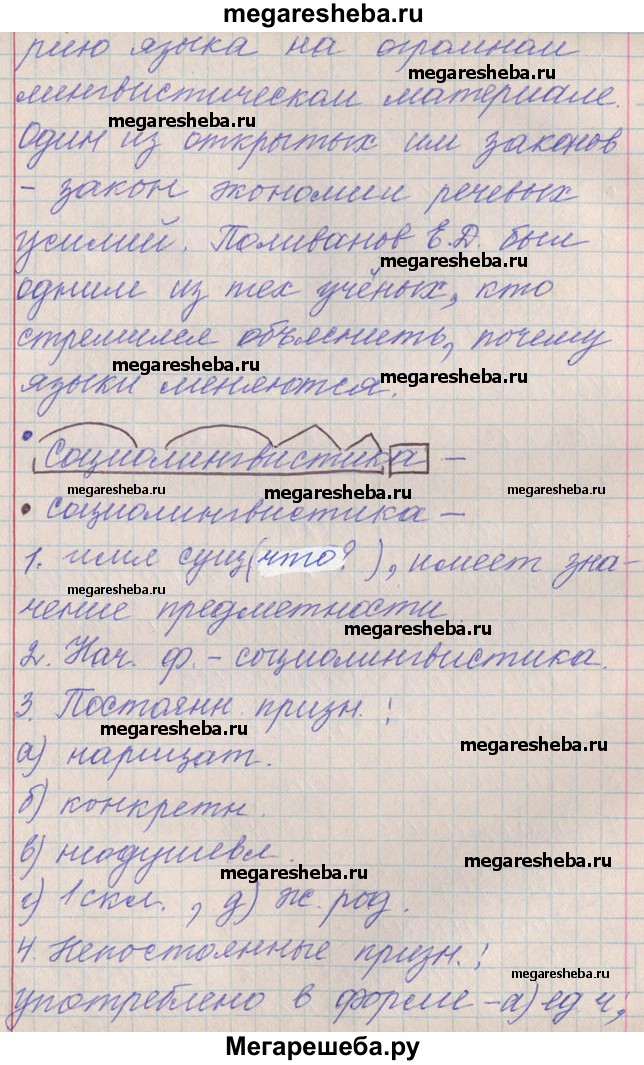 megaresheba.ru
рию языка на огромном
megaresheba.ru
лингвистическом материале.
megaresheba.ru
Один из открытых им законов
– закон экономии речевых
усилий. Поливанов Е.Д. был
megaresheba.ru
одним из тех учёных, кто
стремился объяснить, почему
megaresheba.ru
языки меняются.
megaresheba.ru
• социолингвистика –
megaresheba.ru megaresheba.ru megaresheba.ru
• социолингвистика –
1. имя сущ(что?), имеет зна-
megaresheba.ru
чение предметности
megaresheba.ru
2. Нач. ф. – социолингвистика.
3. Постоянн. призн.:
megaresheba.ru
megaresheba.ru
а) нарицат.
б) конкретн.
в) неодушевл.
megaresheba.ru
megaresheba.ru
г) 1 скл., д) ж. род.
4. Непостоянные призн.:
megaresheba.ru
употреблено в форме – а) ед ч,
megaresheba.ru
Мегарешеба.ру